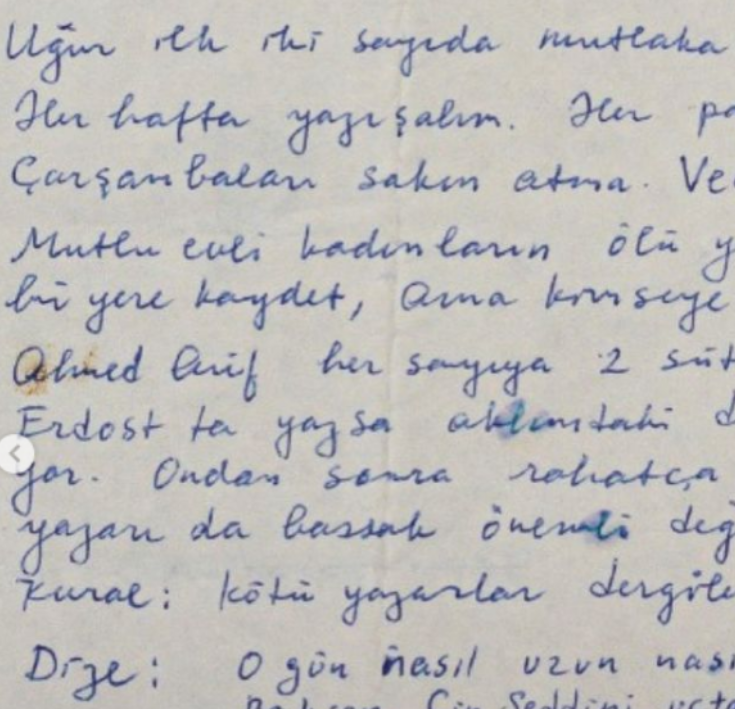 Uğur ilk iki sayıda mutlaka
Her hafta yazışalım. Her pa
Çarşambaları sakın atma. Ve
Mutlu evli kadınların ölü y
bir yere kaydet, ama kimseye
Ahmed Arif her sayıya 2 süt
Erdost ta yazsa aklımdaki d
yor. Ondan sonra rahatça
yazarı da bassak önemli değ
Kural: kötü yazarlar dergile
Dize: O gün nasıl uzun nası
Çin Seddini usta